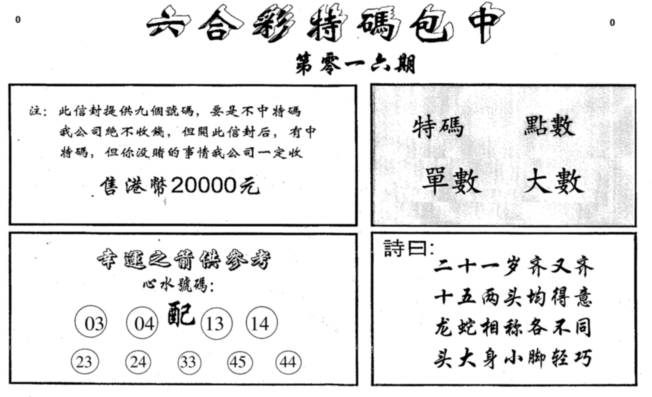 0
六合彩特碼包中
0
第零一六期
注：此信封提供九個號碼，要是不中特碼
我公司絶不收錢，但開此信封后，有中
特碼，但你没賭的事情我公司一定收
售港幣20000元
特碼 點數
單數 大數
幸運之箭供參考
心水號碼：
03 04 配 13 14
23 24 33 45 44
詩曰：
二十一岁齐又齐
十五两头均得意
龙蛇相称各不同
头大身小脚轻巧